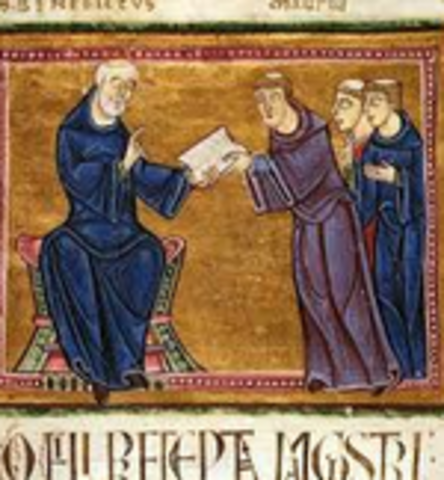 S. BENEDICTVS
O FILI PRECEPTA MAGISTRI